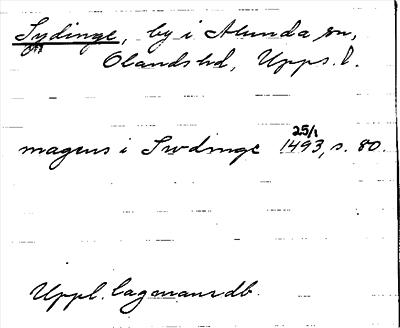 Sydinge, by i Alunda sn,
Olands hd, Upps. l.
magens i Swdinge 25/1 1493, s. 80.
Uppl. lagmansdb.